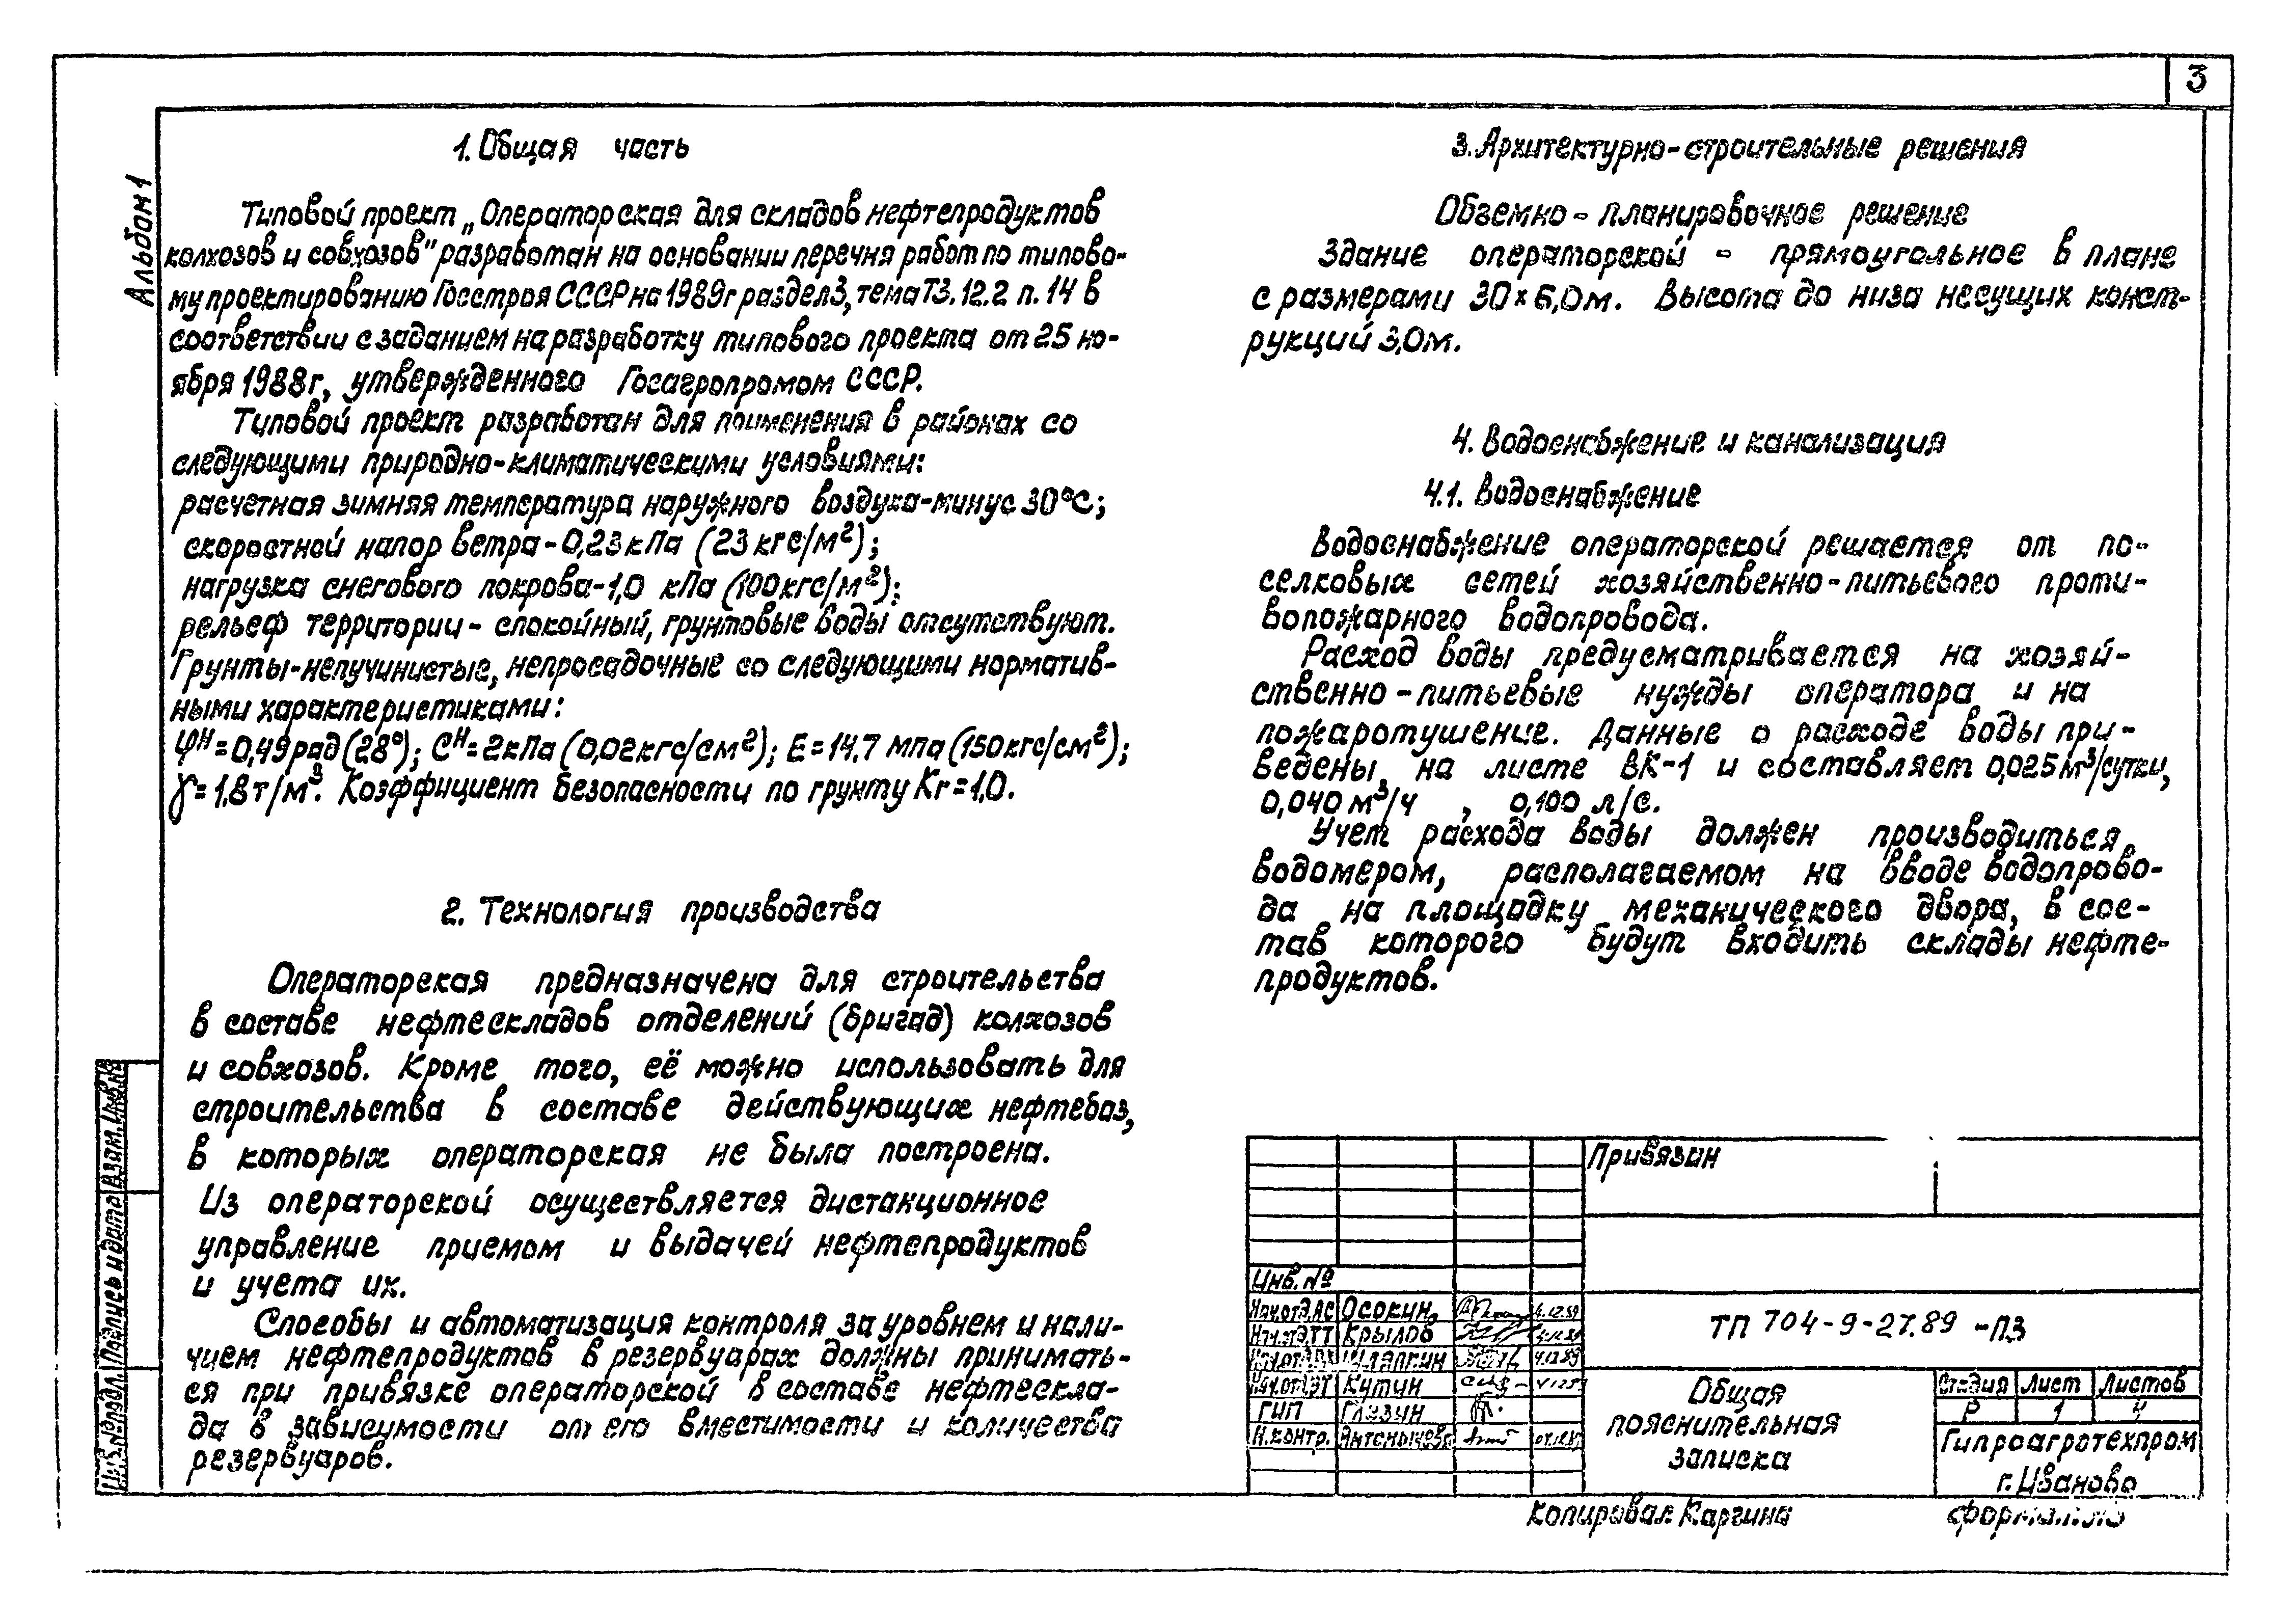 3
Альбом 1
1. Общая часть
Типовой проект „Операторская для складов нефтепродуктов
колхозов и совхозов" разработан на основании перечня работ по типово-
му проектированию Госстроя СССР на 1989г раздел 3, тема Т3.12.2 п. 14 в
соответствии с заданием на разработку типового проекта от 25 но-
ября 1988г, утвержденного Госагропромом СССР.
Типовой проект разработан для применения в районах со
следующими природно-климатическими условиями:
расчетная зимняя температура наружного воздуха-минус 30°С;
скоростной напор ветра-0,23 кПа (23 кгс/м²);
нагрузка снегового покрова-1,0 кПа (100 кгс/м²);
рельеф территории - спокойный, грунтовые воды отсутствуют.
Грунты-непучинистые, непросадочные со следующими норматив-
ными характеристиками:
φᴴ=0,49 рад (28°); Сᴴ=2кПа (0,02кгс/см²); Е=14,7 мпа (150кгс/см²);
γ=1,8 т/м³. Коэффициент безопасности по грунту Кг=1,0.
2. Технология производства
Операторская предназначена для строительства
в составе нефтескладов отделений (бригад) колхозов
и совхозов. Кроме того, её можно использовать для
строительства в составе действующих нефтебаз,
в которых операторская не была построена.
Из операторской осуществляется дистанционное
управление приемом и выдачей нефтепродуктов
и учета их.
Способы и автоматизация контроля за уровнем и нали-
чием нефтепродуктов в резервуарах должны принимать-
ся при привязке операторской в составе нефтескла-
да в зависимости от его вместимости и количества
резервуаров.
3. Архитектурно-строительные решения
Обземно - планировочное решение
Здание операторской - прямоугольное в плане
с размерами 30×6,0м. Высота до низа несущих конст-
рукций 3,0м.
4. Водоснабжение и канализация
4.1. Водоснабжение
Водоснабжение операторской решается от по-
селковых сетей хозяйственно-питьевого проти-
вопожарного водопровода.
Расход воды предусматривается на хозяй-
ственно-питьевые нужды оператора и на
пожаротушение. Данные о расходе воды при-
ведены на листе ВК-1 и составляет 0,025 м³/сутки,
0,040 м³/ч , 0,100 л/с.
Учет расхода воды должен производиться
водомером, располагаемом на вводе водопрово-
да на площадку механического двора, в сос-
тав которого будут входить склады нефте-
продуктов.
Привязан
Инв. №
Нач.отд.АС Осокин
Нач.отд.ТТ Крылов
Нач.отд. 4.12.89
Нач.отд.ЭТ Кутин
ГИП Глузин
Н.контр.
ТП 704-9-27.89 -ПЗ
Общая
пояснительная
записка
Стадия Лист Листов
Р 1 4
Гипроагротехпром
г. Иваново
Копировал Каргина
Формат А3
Инв.№подл. Подпись и дата Взам.инв.№